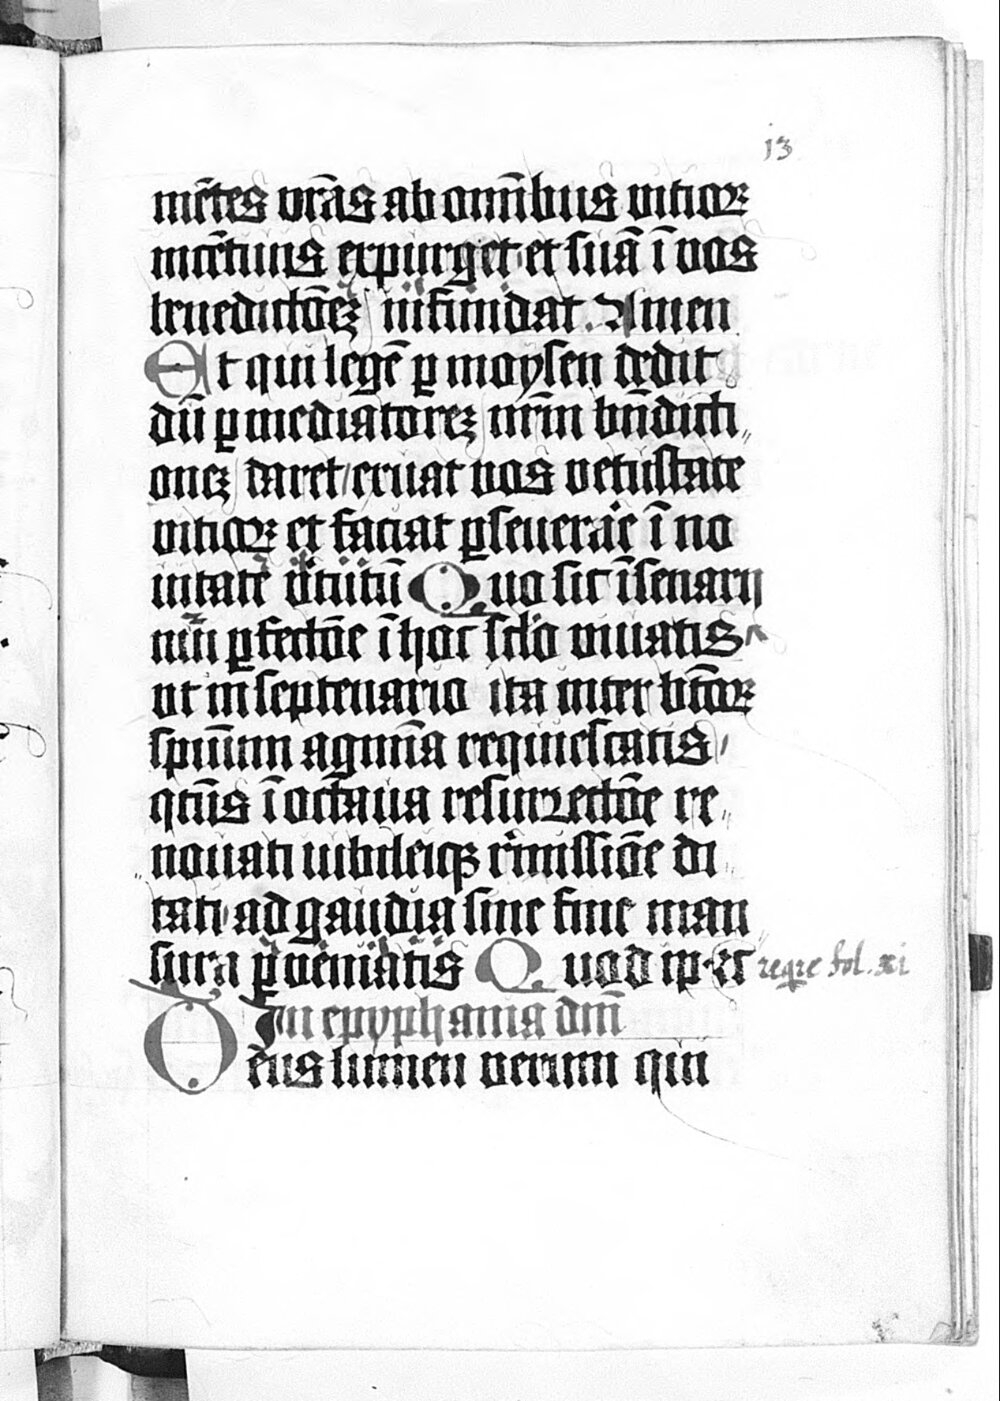 13
mētes vr̄as ab om̄ibus uitioꝝ
incētiuis expurget et suā ī vos
benedictōeꝫ infundat. Amen
Et qui legē ꝑ moysen dedit
dū ꝑ mediatoreꝫ nr̄m bn̄dicti
oneꝫ daret eruat uos vetustate
uitioꝝ et faciat ꝑseuerāe ī no
uitate v̓tutū Quo sic ī senarij
nūi ꝑfectōe ī hoc sc̄lo viuatis
vt in septenario ita inter bt̄oꝝ
spūum agmīa requiescatis
qt̄us ī octaua resurrectōe re
nouati iubileiqꝫ r̓missiōe di
tati ad gaudia sine fine man
sura ꝑueniatis Quod ip̄e
reqre fol. xi
In epyphania dm̄
Deus lumen verum qui